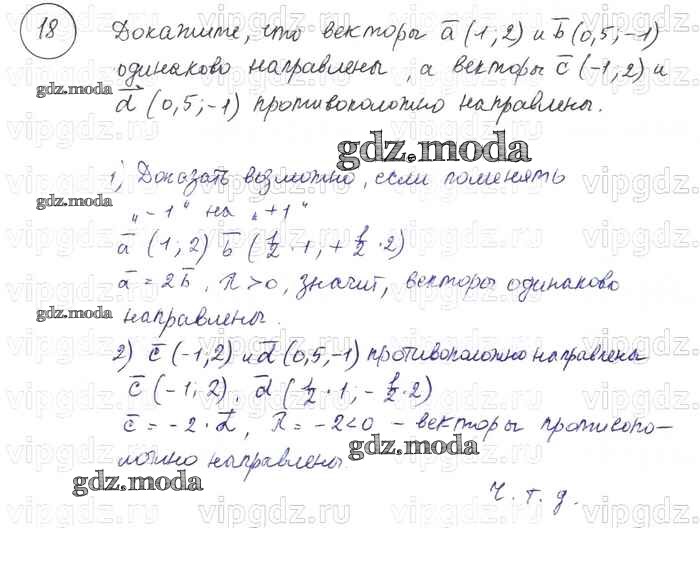 18 Докажите, что векторы a̅ (1; 2) и b̅ (0,5; -1)
одинаково направлены, а векторы c̅ (-1; 2) и
d̅ (0,5; -1) противоположно направлены.
1) Доказать возможно, если поменять
„-1“ на „+1“
a̅ (1; 2) b̅ (1/2 · 1; + 1/2 · 2)
a̅ = 2b̅, λ > 0, значит, векторы одинаково
направлены.
2) c̅ (-1; 2) и d̅ (0,5; -1) противоположно направлены
c̅ (-1; 2), d̅ (1/2 · 1; - 1/2 · 2)
c̅ = -2 · d̅, λ = -2 < 0 - векторы противопо-
ложно направлены.
Ч. т. д.
gdz.moda
gdz.moda
gdz.moda
gdz.moda
gdz.moda
gdz.moda
vipgdz.ru